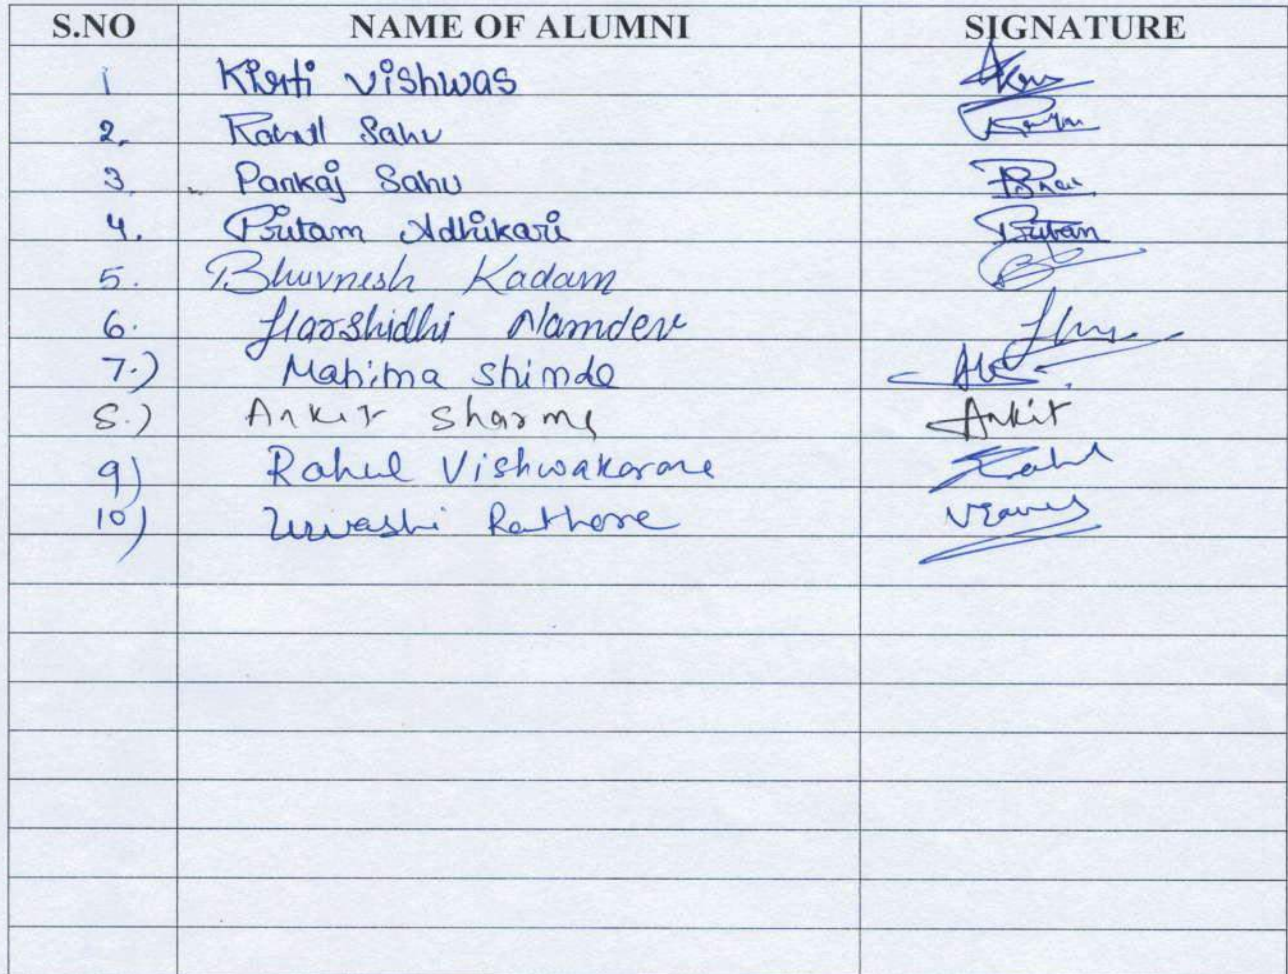 S.NO NAME OF ALUMNI SIGNATURE
1 Kirti Vishwas
2. Rahul Sahu
3. Pankaj Sahu
4. Pritam Adhikari Pritam
5. Bhuvnesh Kadam
6. Harshidhi Namdev
7.) Mahima Shinde
8.) Ankit Sharma Ankit
9) Rahul Vishwakarma Rahul
10) Urvashi Rathore